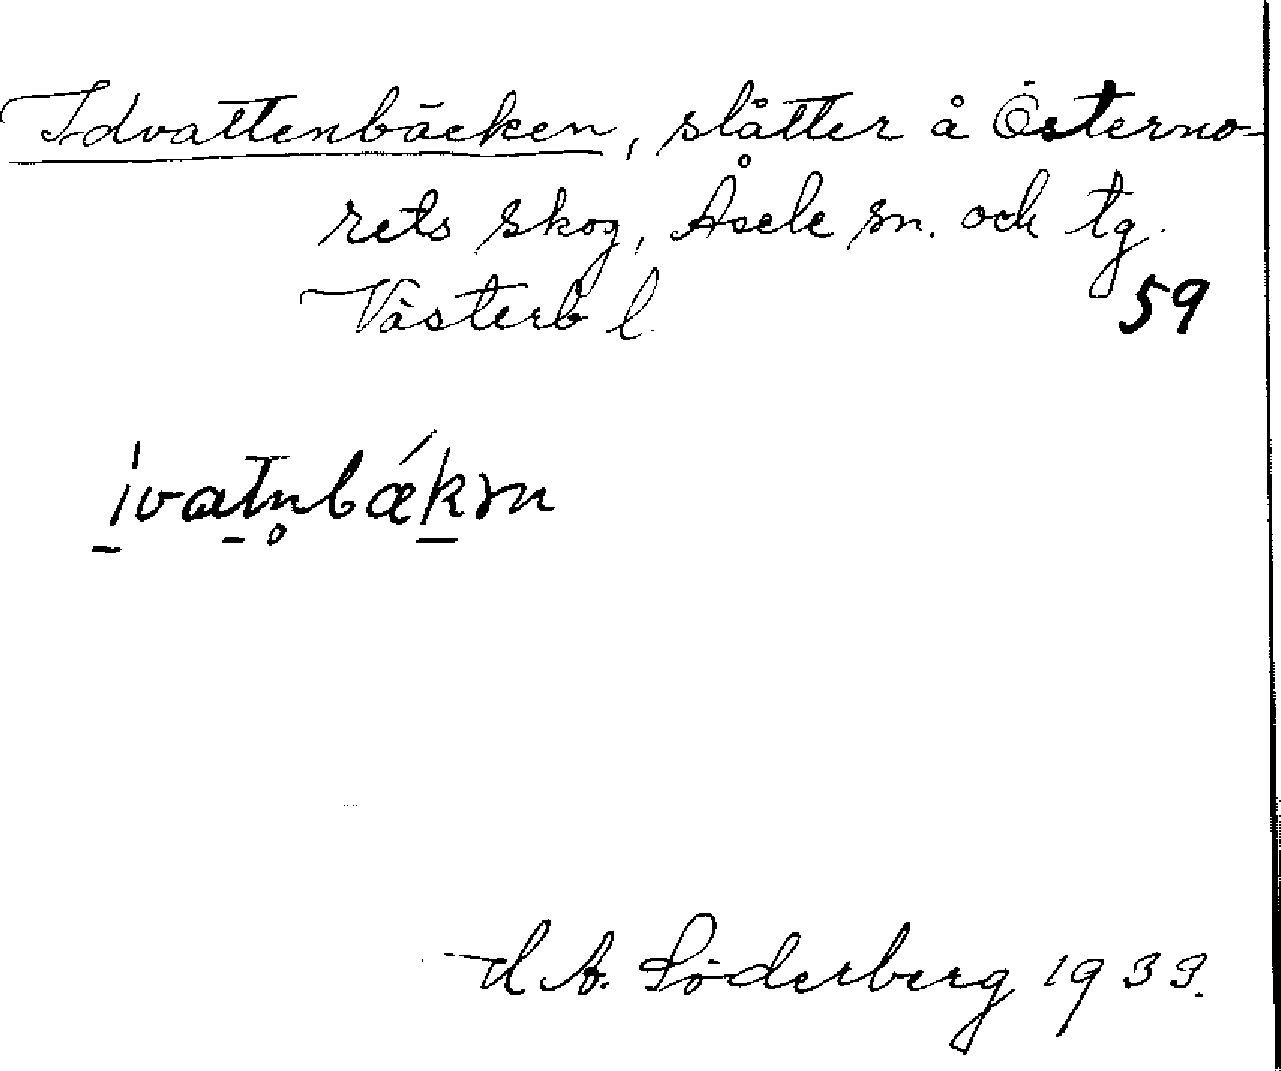 Idvattenbäcken, slåtter å Österno-
rets skog, Åsele sn. och tg.
Västerb l.
59
ivatn̥bǽkən
H. A. Söderberg 1933.